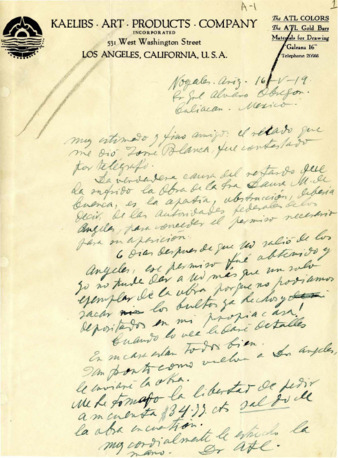 A-1
KAELIBS · ART · PRODUCTS · COMPANY
INCORPORATED
531 West Washington Street
LOS ANGELES, CALIFORNIA, U.S.A.
The ATL COLORS
The ATL Gold Bars
Materials for Drawing
Telephone
Nogales, Ariz. 16-V-19
Sr Gral Alvaro Obregon
Culiacan - Mexico.
muy estimado y fino amigo: el recado que
me dió Torre Blanca fue contestado
por telégrafo.
La verdadera causa del retardo que
ha sufrido la obra de la Sra Laura M. de
Cuenca, es la apatía, obstruccion,
decir, de las autoridades federales de los
Angeles, para conceder el permiso necesario
para su aparición.
6 dias después de que Ud salio de Los
Angeles, ese permiso fué obtenido y
yo no pude dar a Ud más que un solo
ejemplar de la obra porque no podíamos
sacar los bultos ya hechos y
depositados en mi propia casa.
Cuando lo vea le daré detalles
En mi casa estan todos bien.
Tan pronto como vuelva a Los Angeles,
le enviaré la obra.
Me he tomado la libertad de pedir
a mi cuenta $34.77 cts saldo de
la obra en cuestion.
muy cordialmente le estrecho la
mano. Dr Atl.